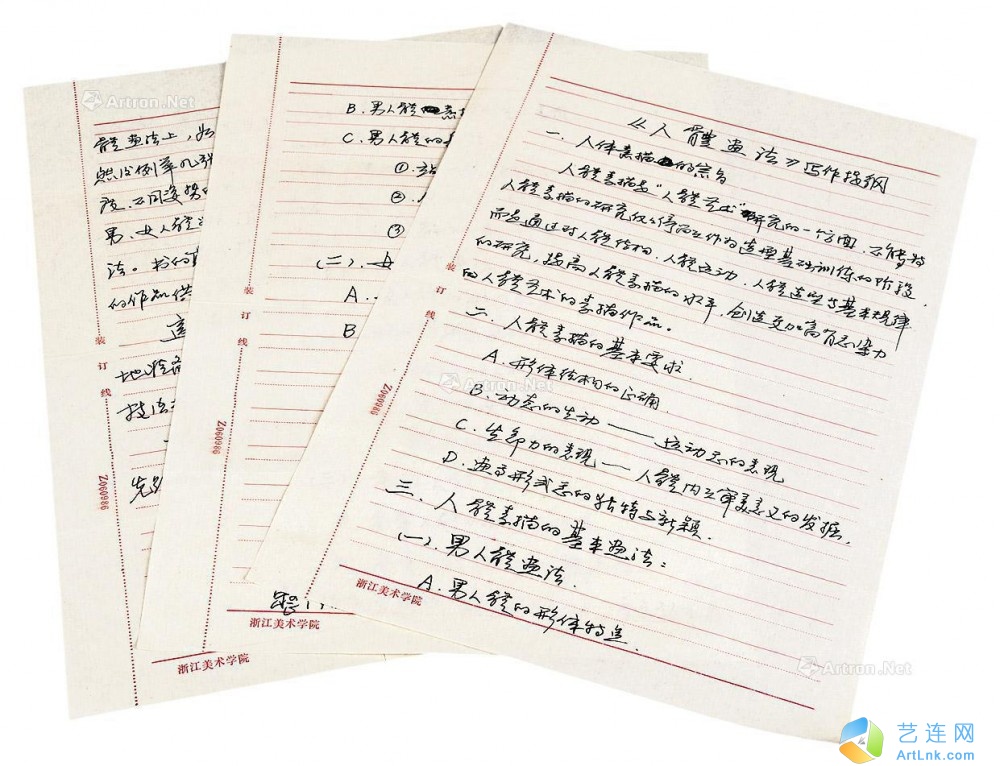 《人體画法》写作提纲
一、人体素描的宗旨
人體素描是“人體艺术”研究的一方面,不能将
人體素描的研究仅仅停留在作为造型基础训练的阶段,
而是通过对人體结构、人體运动、人體造型与基本规律
的研究,提高人體素描的水平,创造更加高有感染力
的人體艺术的素描作品。
二、人體素描的基本要求
A.形体结构的正确
B.动态的生动——运动感的表现
C.生命力的表现—人體内在审美意义的发掘。
D.画面形式感的独特与新颖。
三、人體素描的基本画法:
(一)、男人體画法.
A.男人體的形体特点.
浙江美术学院
装订线
Z060986
B.男人體
C.男人體的
①
②
③
(二)、女
A..
B
浙江美术学院
装订线
Z060986
體画法上,
度、不同姿势
男、女人體
法。书的
的作品供
这
地
技法
浙江美术学院
装订线
Z060986
Artron.Net
Artron.Net
Artron.Net
艺连网
ArtLnk.com